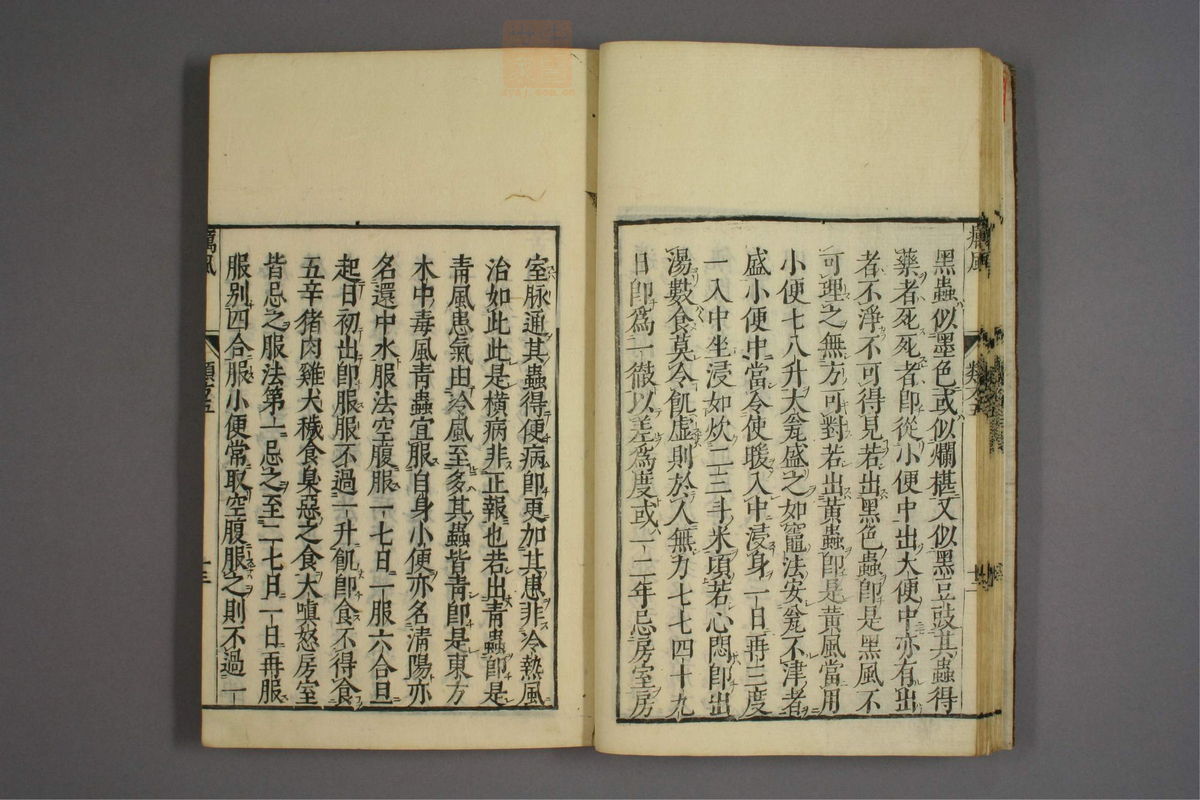 黑蟲似墨色或似爛椹又似黑豆豉其蟲得
藥者死死者即從小便中出大便中亦有出
者不淨不可得見若出黑色蟲即是黑風不
可理之無方可對若出黃蟲即是黃風當用
小便七八升大瓮盛之如竈法安瓮不津者
盛小便中當令使暖入中浸身一日再三度
一入中坐浸如炊二三斗米頃若心悶即出
湯數食莫令飢虛則於人無力七七四十九
日即為一徹以差為度或一二年忌房室房
室脉通其蟲得便病即更加其患非冷熱風
治如此此是橫病非正報也若出青蟲即是
青風患氣由冷風至多其蟲皆青即是東方
木中毒風青蟲宜服自身小便亦名清陽亦
名還中水服法空腹服一七日一服六合旦
起日初出即服服不過一升飢即食不得食
五辛猪肉雞犬穢食臭惡之食大嗔怒房室
皆忌之服法第一忌之至二七日一日再服
服別四合服小便常取空腹服之則不過一